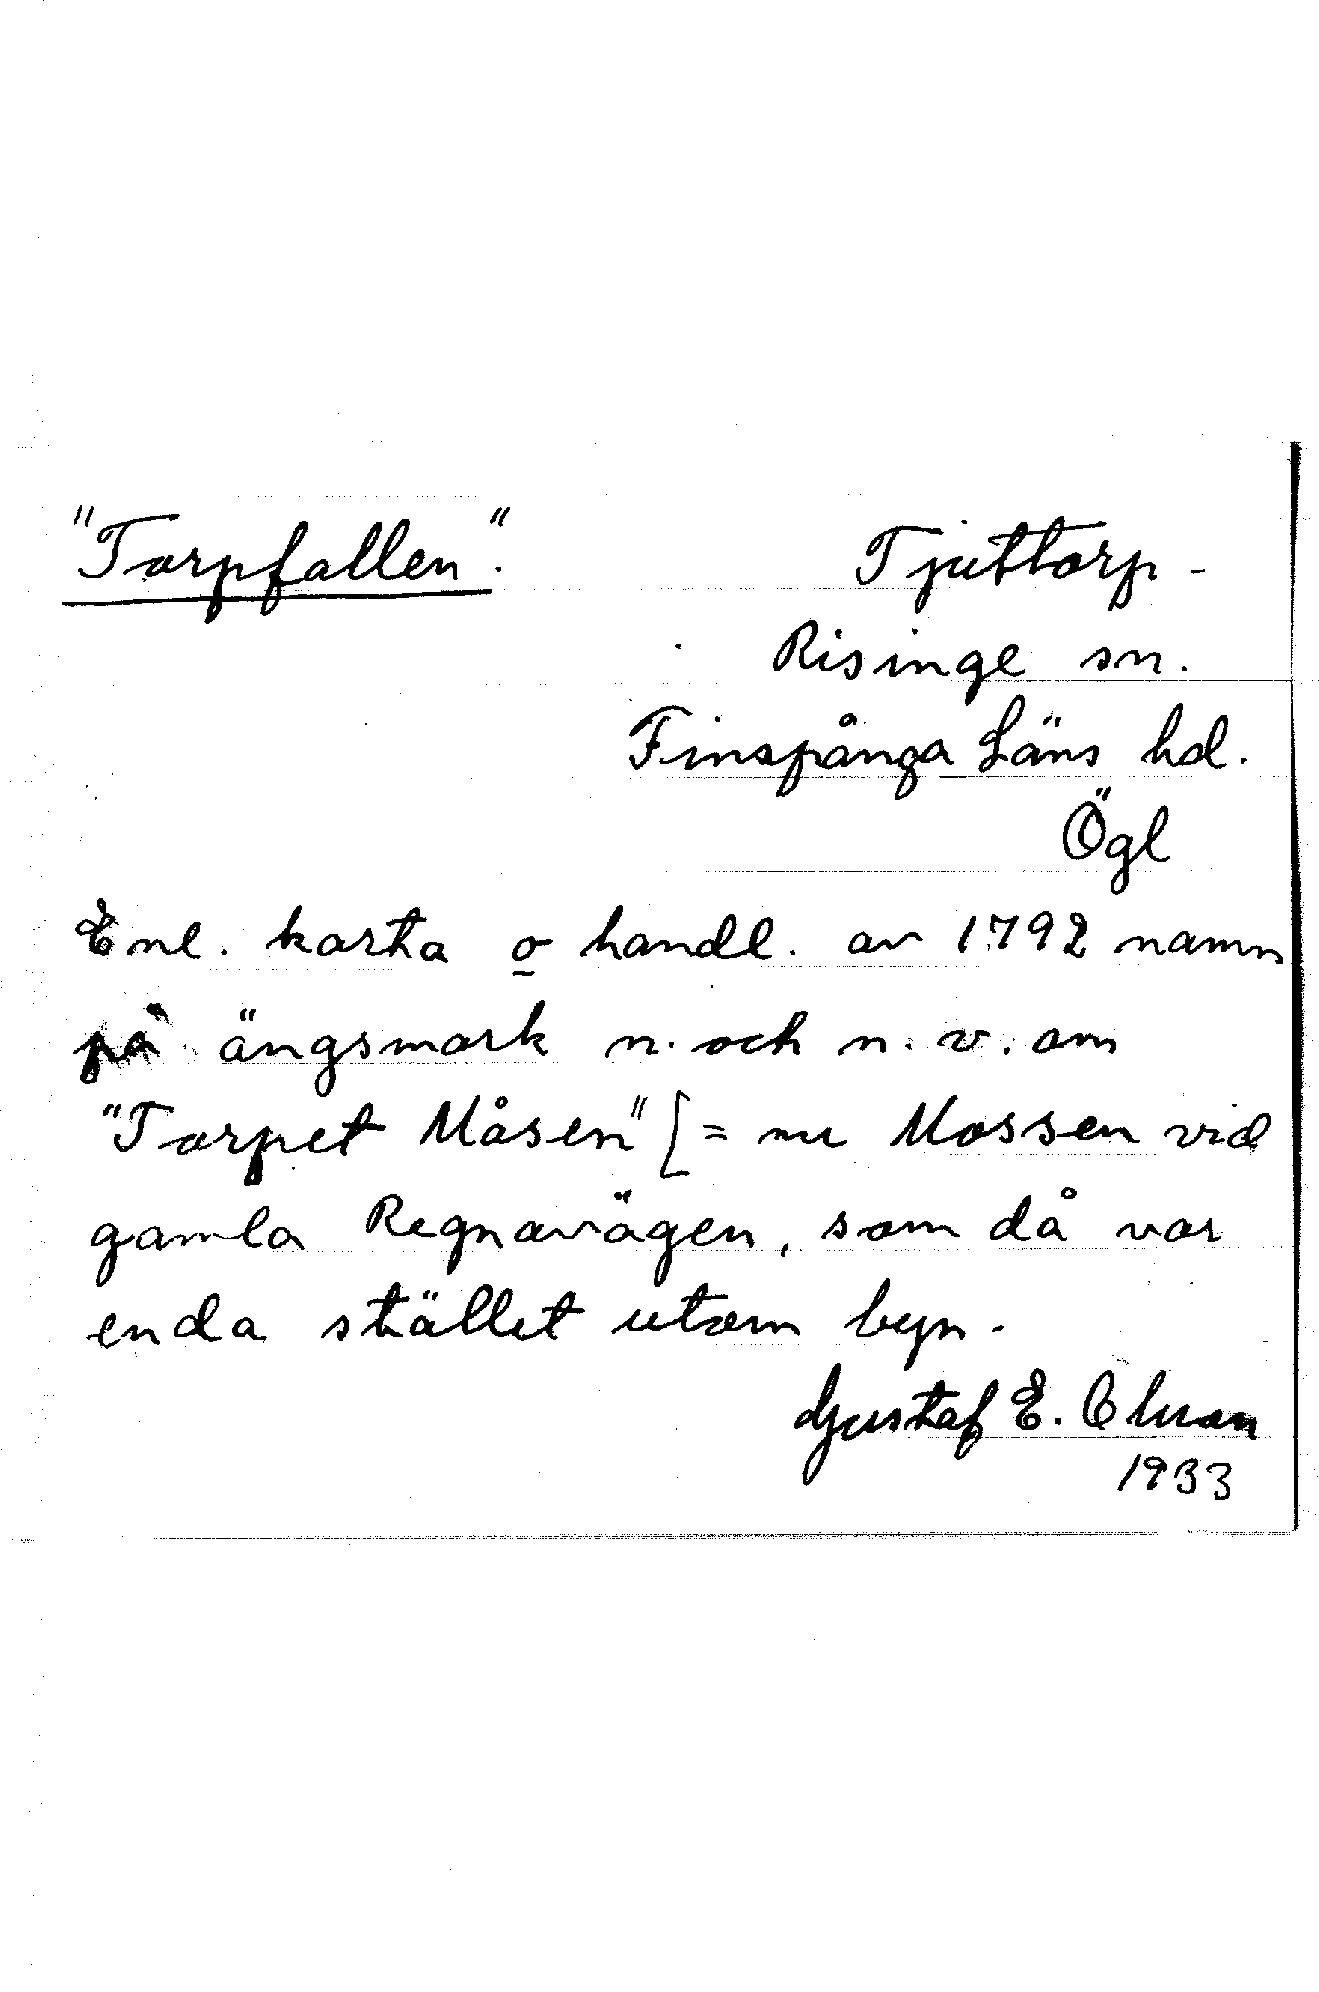 "Torpfallen".
Tjuttorp -
Risinge sn.
Finspånga Läns hd.
Ögl
Enl. karta o handl. av 1792 namn
på ängsmark n. och n. v. om
"Torpet Måsen" [= nu Mossen vid
gamla Regnavägen, som då var
enda stället utom byn.
Gustaf E.
1933